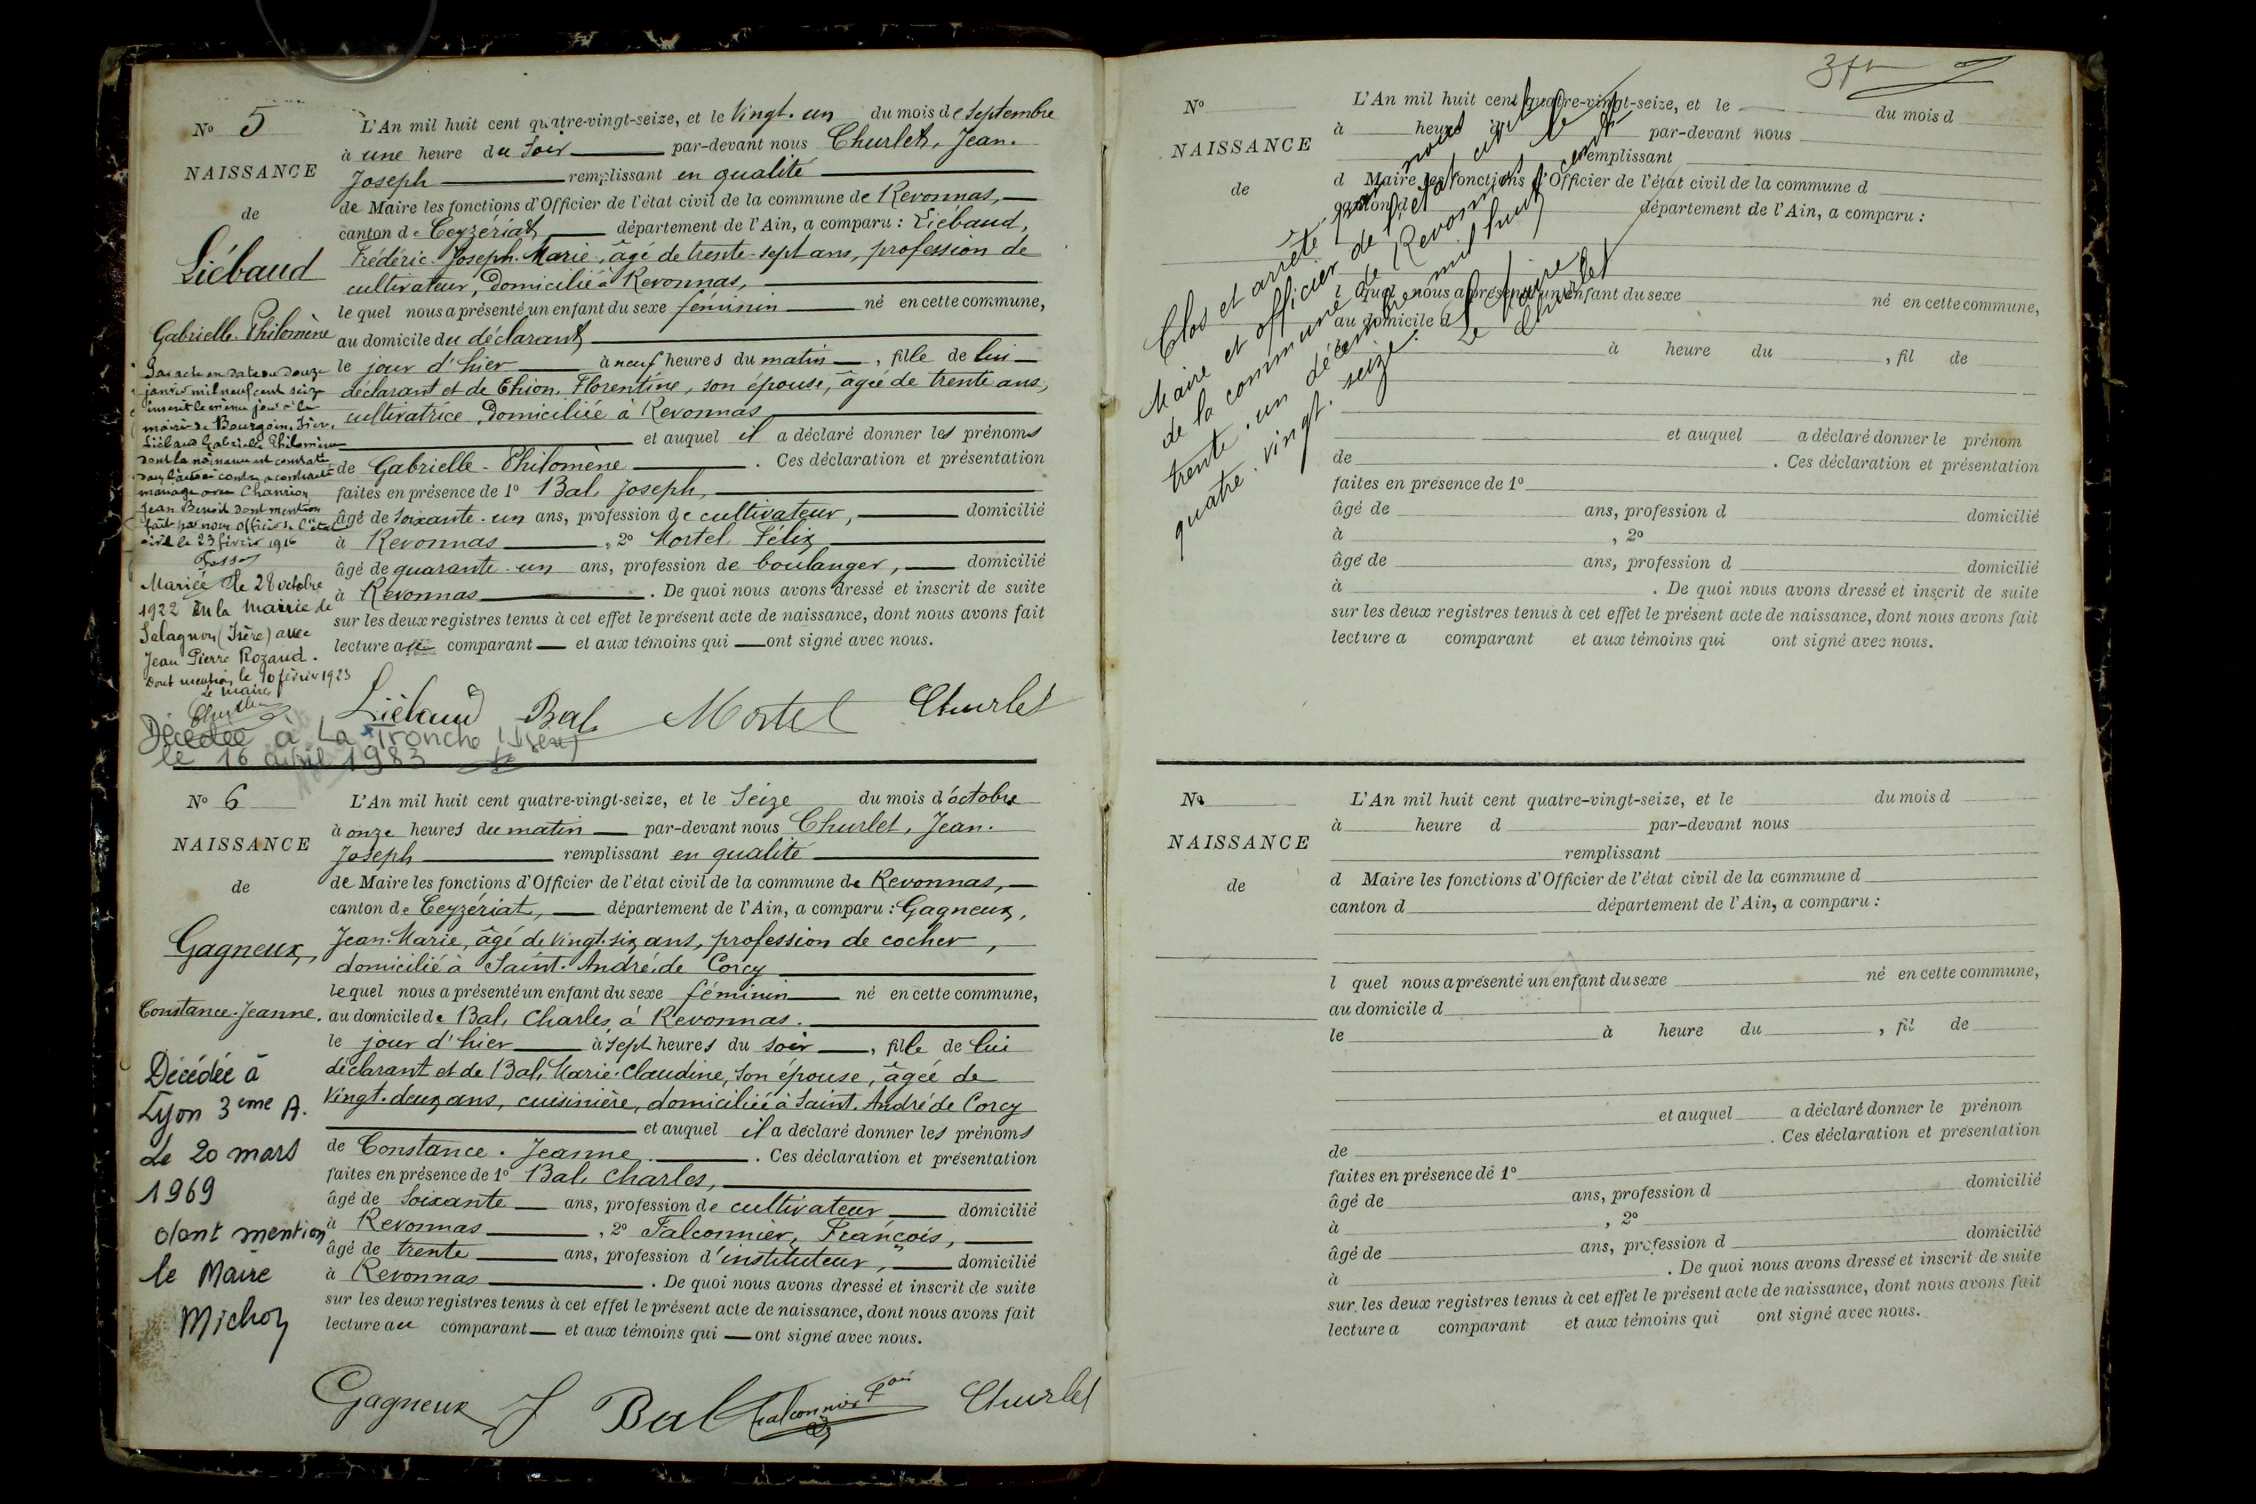 N° 5
NAISSANCE
de
Liébaud
Gabrielle-Philomène
Par acte en date du douze
janvier mil neuf cent seize
inscrit le même jour à la
mairie de Bourgoin, Isère,
Liébaud Gabrielle Philomène
dont la naissance est constatée
dans l'acte ci-contre a contracté
mariage avec Chanrion
Jean Benoit dont mention
fait par nous officier de l'état
civil le 23 février 1916
Mariée le 28 octobre
1922 en la mairie de
Salagnon (Isère) avec
Jean Pierre Rozand.
Dont mention, le 10 février 1923
Le maire
Décédée à La Tronche (Isère)
le 16 avril 1983
L'An mil huit cent quatre-vingt-seize, et le Vingt-un du mois de Septembre
à une heure du Soir par-devant nous Churlet, Jean-
Joseph remplissant en qualité
de Maire les fonctions d'Officier de l'état civil de la commune de Revonnas,
canton de Ceyzériat, département de l'Ain, a comparu : Liébaud,
Frédéric-Joseph-Marie, âgé de trente-sept ans, profession de
cultivateur, domicilié à Revonnas,
lequel nous a présenté un enfant du sexe féminin né en cette commune,
au domicile du déclarant
le jour d'hier à neuf heures du matin, fille de lui
déclarant et de Thion, Florentine, son épouse, âgée de trente ans,
cultivatrice, domiciliée à Revonnas
et auquel il a déclaré donner les prénoms
de Gabrielle-Philomène. Ces déclaration et présentation
faites en présence de 1° Bal, Joseph,
âgé de soixante-un ans, profession de cultivateur, domicilié
à Revonnas, 2° Mortel, Félix
âgé de quarante-un ans, profession de boulanger, domicilié
à Revonnas. De quoi nous avons dressé et inscrit de suite
sur les deux registres tenus à cet effet le présent acte de naissance, dont nous avons fait
lecture au comparant et aux témoins qui ont signé avec nous.
Liébaud Bal Mortel Churlet
N° 6
NAISSANCE
de
Gagneux,
Constance-Jeanne.
Décédée à
Lyon 3ème A.
le 20 mars
1969
dont mention
le Maire
Michon
L'An mil huit cent quatre-vingt-seize, et le Seize du mois d'octobre
à onze heures du matin par-devant nous Churlet, Jean-
Joseph remplissant en qualité
de Maire les fonctions d'Officier de l'état civil de la commune de Revonnas,
canton de Ceyzériat, département de l'Ain, a comparu : Gagneux,
Jean-Marie, âgé de vingt-six ans, profession de cocher,
domicilié à Saint-André-de Corcy
lequel nous a présenté un enfant du sexe féminin né en cette commune,
au domicile de Bal, Charles, à Revonnas.
le jour d'hier à sept heures du soir, fille de lui
déclarant et de Bal, Marie-Claudine, son épouse, âgée de
vingt-deux ans, cuisinière, domiciliée à Saint-André de Corcy
et auquel il a déclaré donner les prénoms
de Constance-Jeanne. Ces déclaration et présentation
faites en présence de 1° Bal, Charles,
âgé de soixante ans, profession de cultivateur domicilié
à Revonnas, 2° Falconnier, François,
âgé de trente ans, profession d'instituteur, domicilié
à Revonnas. De quoi nous avons dressé et inscrit de suite
sur les deux registres tenus à cet effet le présent acte de naissance, dont nous avons fait
lecture au comparant et aux témoins qui ont signé avec nous.
Gagneux J Bal Falconnier Fçois Churlet
N°
NAISSANCE
de
L'An mil huit cent quatre-vingt-seize, et le du mois d
à heure d par-devant nous
remplissant
d Maire les fonctions d'Officier de l'état civil de la commune d
canton d département de l'Ain, a comparu :
l quel nous a présenté un enfant du sexe né en cette commune,
au domicile d
à heure du , fil de
et auquel a déclaré donner le prénom
de . Ces déclaration et présentation
faites en présence de 1°
âgé de ans, profession d domicilié
à , 2°
âgé de ans, profession d domicilié
à . De quoi nous avons dressé et inscrit de suite
sur les deux registres tenus à cet effet le présent acte de naissance, dont nous avons fait
lecture a comparant et aux témoins qui ont signé avec nous.
Clos et arrêté par nous
Maire et officier de l'état civil
de la commune de Revonnas le
trente-un décembre mil huit cent
quatre-vingt-seize.
Le Maire,
Churlet
N°
NAISSANCE
de
L'An mil huit cent quatre-vingt-seize, et le du mois d
à heure d par-devant nous
remplissant
d Maire les fonctions d'Officier de l'état civil de la commune d
canton d département de l'Ain, a comparu :
l quel nous a présenté un enfant du sexe né en cette commune,
au domicile d
le à heure du , fil de
et auquel a déclaré donner le prénom
de . Ces déclaration et présentation
faites en présence de 1°
âgé de ans, profession d domicilié
à , 2°
âgé de ans, profession d domicilié
à . De quoi nous avons dressé et inscrit de suite
sur les deux registres tenus à cet effet le présent acte de naissance, dont nous avons fait
lecture a comparant et aux témoins qui ont signé avec nous.